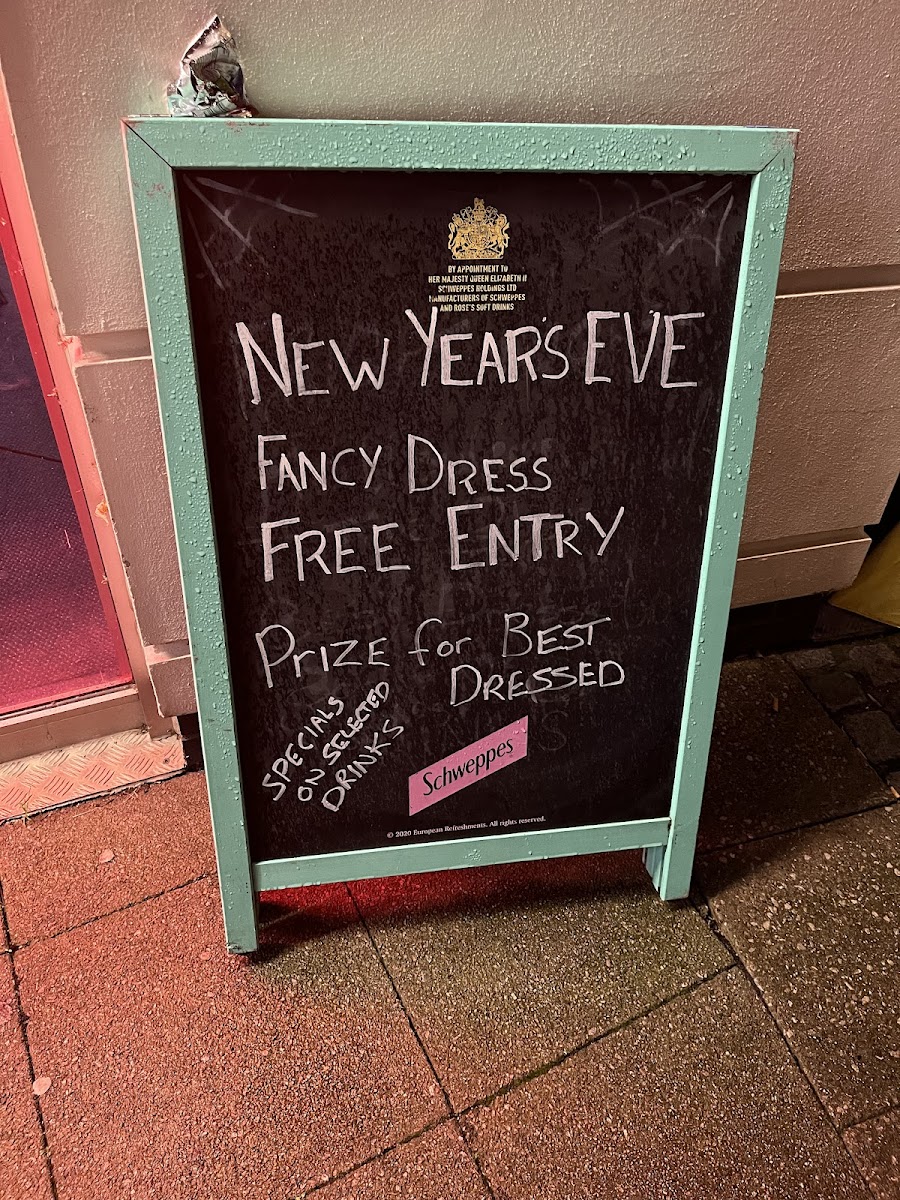 BY APPOINTMENT TO
HER MAJESTY QUEEN ELIZABETH II
SCHWEPPES HOLDINGS LTD
MANUFACTURERS OF SCHWEPPES
AND ROSE'S SOFT DRINKS
NEW YEAR'S EVE
FANCY DRESS
FREE ENTRY
PRIZE for BEST
DRESSED
SPECIALS
ON SELECTED
DRINKS
Schweppes
© 2020 European Refreshments. All rights reserved.